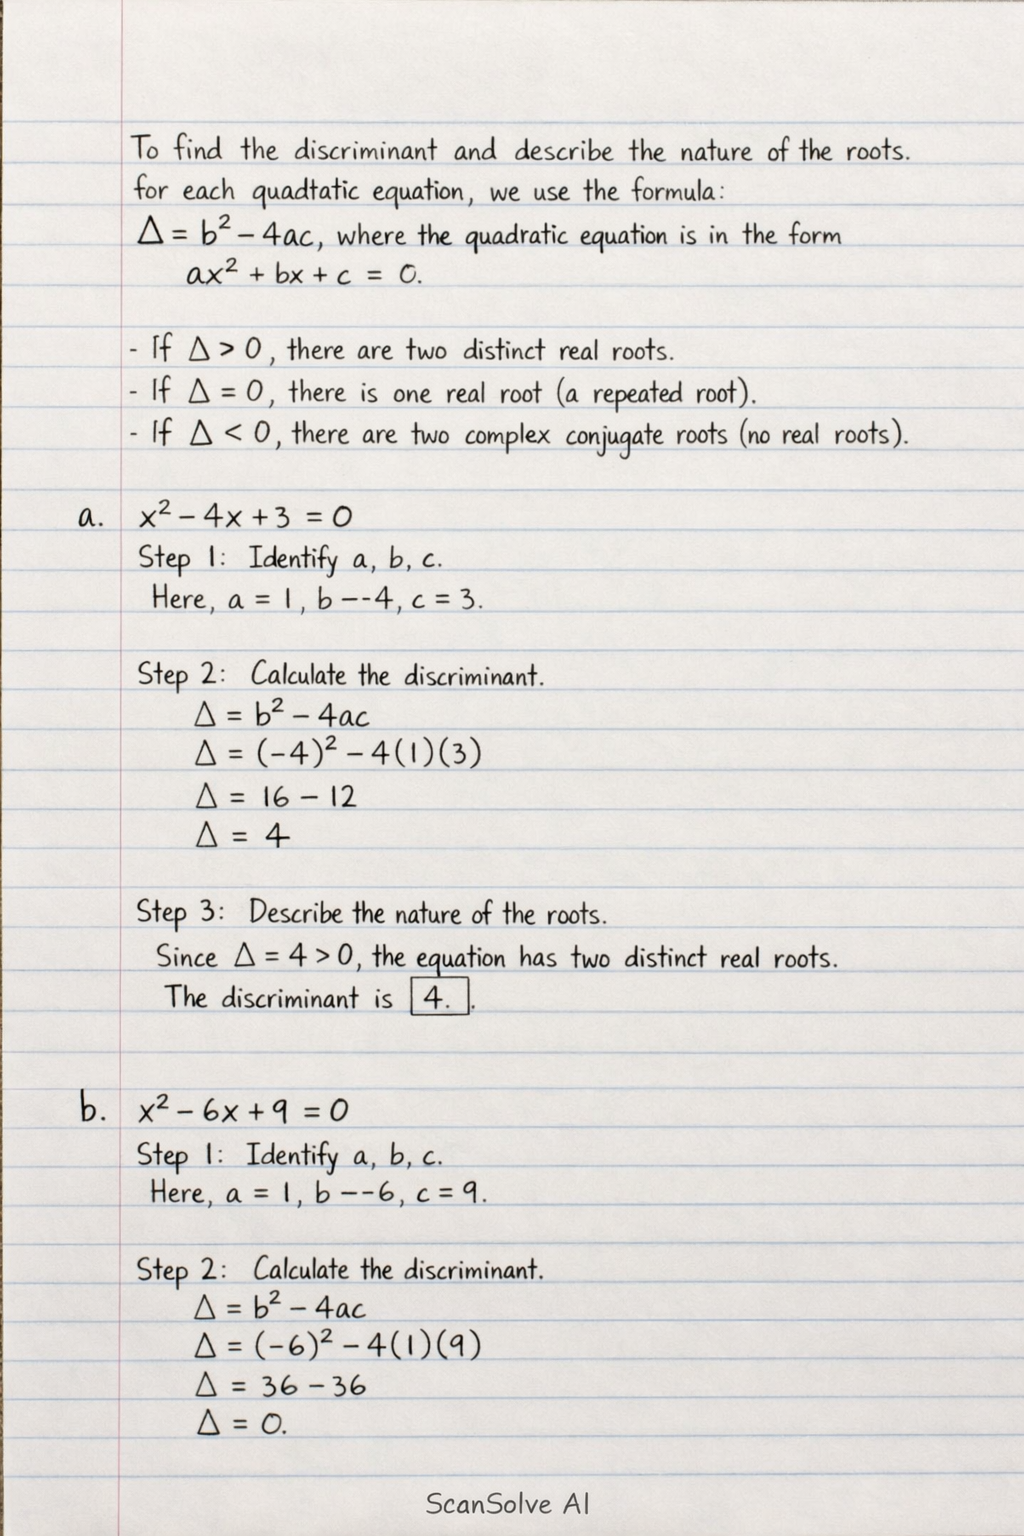 To find the discriminant and describe the nature of the roots.
for each quadtatic equation, we use the formula:
Δ = b² – 4ac, where the quadratic equation is in the form
ax² + bx + c = 0.
- If Δ > 0, there are two distinct real roots.
- If Δ = 0, there is one real root (a repeated root).
- If Δ < 0, there are two complex conjugate roots (no real roots).
a. x² – 4x + 3 = 0
Step 1: Identify a, b, c.
Here, a = 1, b –-4, c = 3.
Step 2: Calculate the discriminant.
Δ = b² – 4ac
Δ = (-4)² – 4(1)(3)
Δ = 16 – 12
Δ = 4
Step 3: Describe the nature of the roots.
Since Δ = 4 > 0, the equation has two distinct real roots.
The discriminant is 4..
b. x² – 6x + 9 = 0
Step 1: Identify a, b, c.
Here, a = 1, b –-6, c = 9.
Step 2: Calculate the discriminant.
Δ = b² – 4ac
Δ = (-6)² – 4(1)(9)
Δ = 36 – 36
Δ = 0.
ScanSolve AI